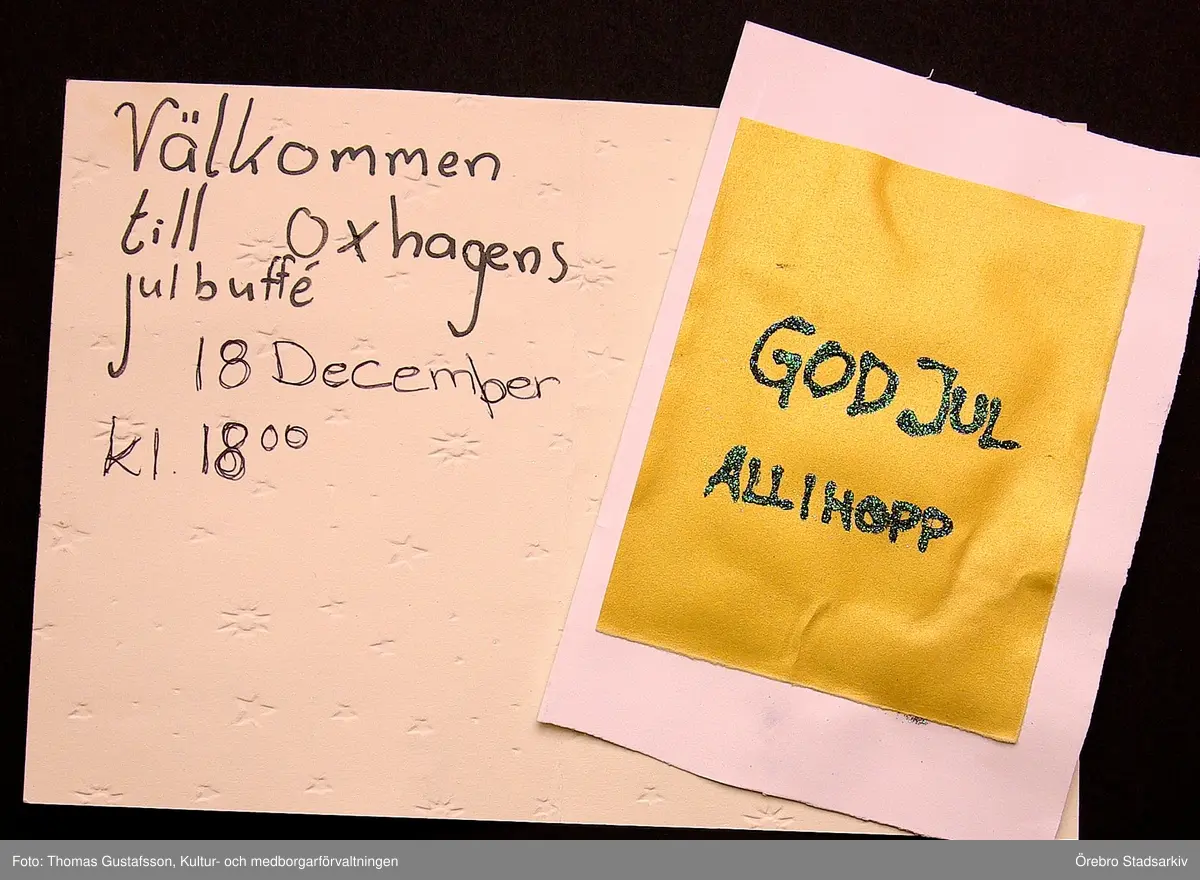 Välkommen
till Oxhagens
julbuffé
18 December
kl. 18⁰⁰
GOD JUL
ALLIHOPP
Foto: Thomas Gustafsson, Kultur- och medborgarförvaltningen
Örebro Stadsarkiv